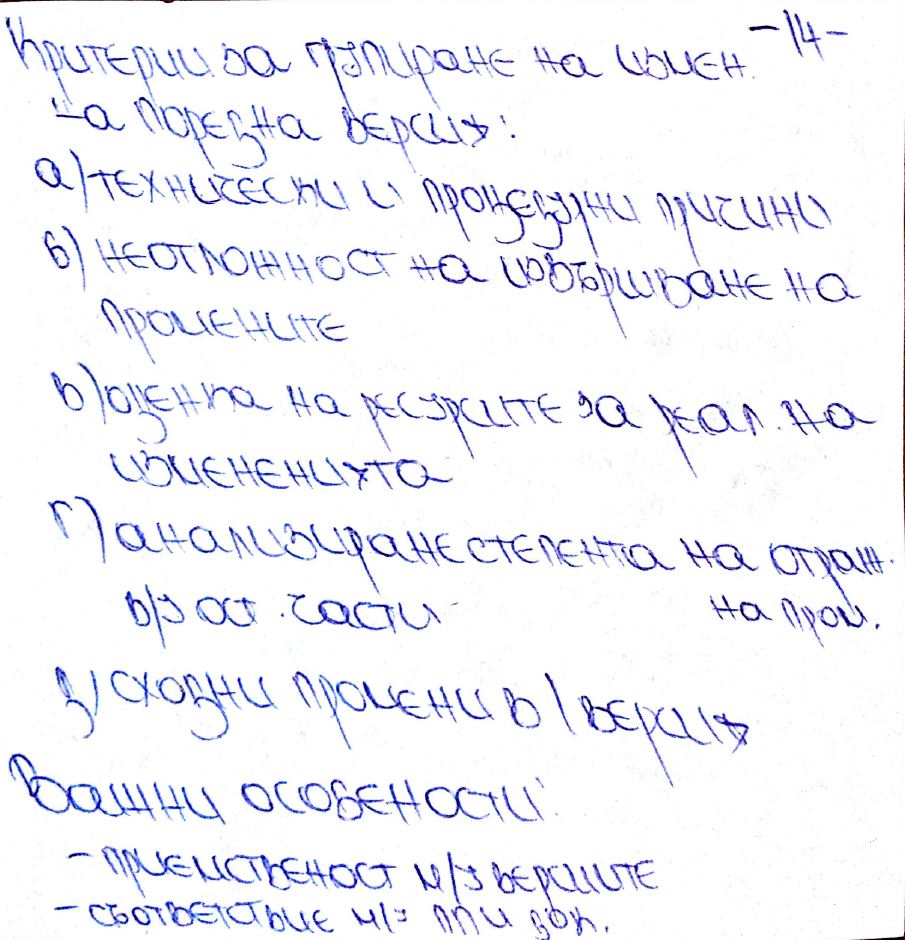 -14-
Критерии за групиране на измен.
на поредна версия:
а) технически и процедурни причини
б) неотложност на извършване на
промените
в) оценка на ресурсите за реал. на
измененията
г) анализиране степента на отраж.
на пром.
в/у ост. части
д) сходни промени в 1 версия
Важни особености:
- приемственост м/у версиите
- съответствие м/у ПП и док.